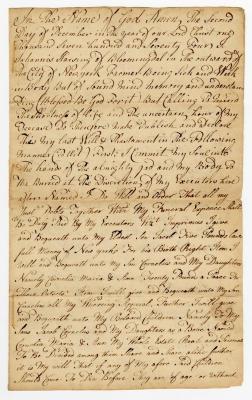 In The Name of God Amen, The Second
Day of December in the year of our Lord Christ one
Thousand Seven hundred and Seventy Four I
Johannis Lansing of Bloomingdall in the outward of
the City of New york Farmer Being Sick and Weak
in Body But of Sound mind memory and understand
ing Blessed Be God for it But Calling To mind
the of Life and the uncertain hour of my
Decease Do Therefore make Publish and declare
This my Last Will & Testament in the Following
manner First I Commit my Soul into
The hands of the almighty god and my Body to
be Buried at the Discretion of my Executors here
after Named I Do Will and order That all my
Just Debts Together With my Funeral Expences Shall
Be Duly Paid By my Executors I give
and Bequeath unto my Son Jacob Five Pounds law
full money of New york For his Birth Right Item I
Will and Bequeath unto my Son Cornelius and my Daughters
Namely Cornelia Maria & Ann Twenty Pounds a Piece
Item I will give and Bequeath unto my Son
Cornelius all my Wearing Apparel, Farther I will give
and Bequeath unto my Beloved Children Namely To my
Sons Jacob Cornelius and my Daughters as above Named
Cornelia Maria & Ann my Whole Estate Real and Personal
To Be Divided among them Share and Share alike further
it is my will That if any of my afore Said Children
Should Come To Die Before They are of age or without